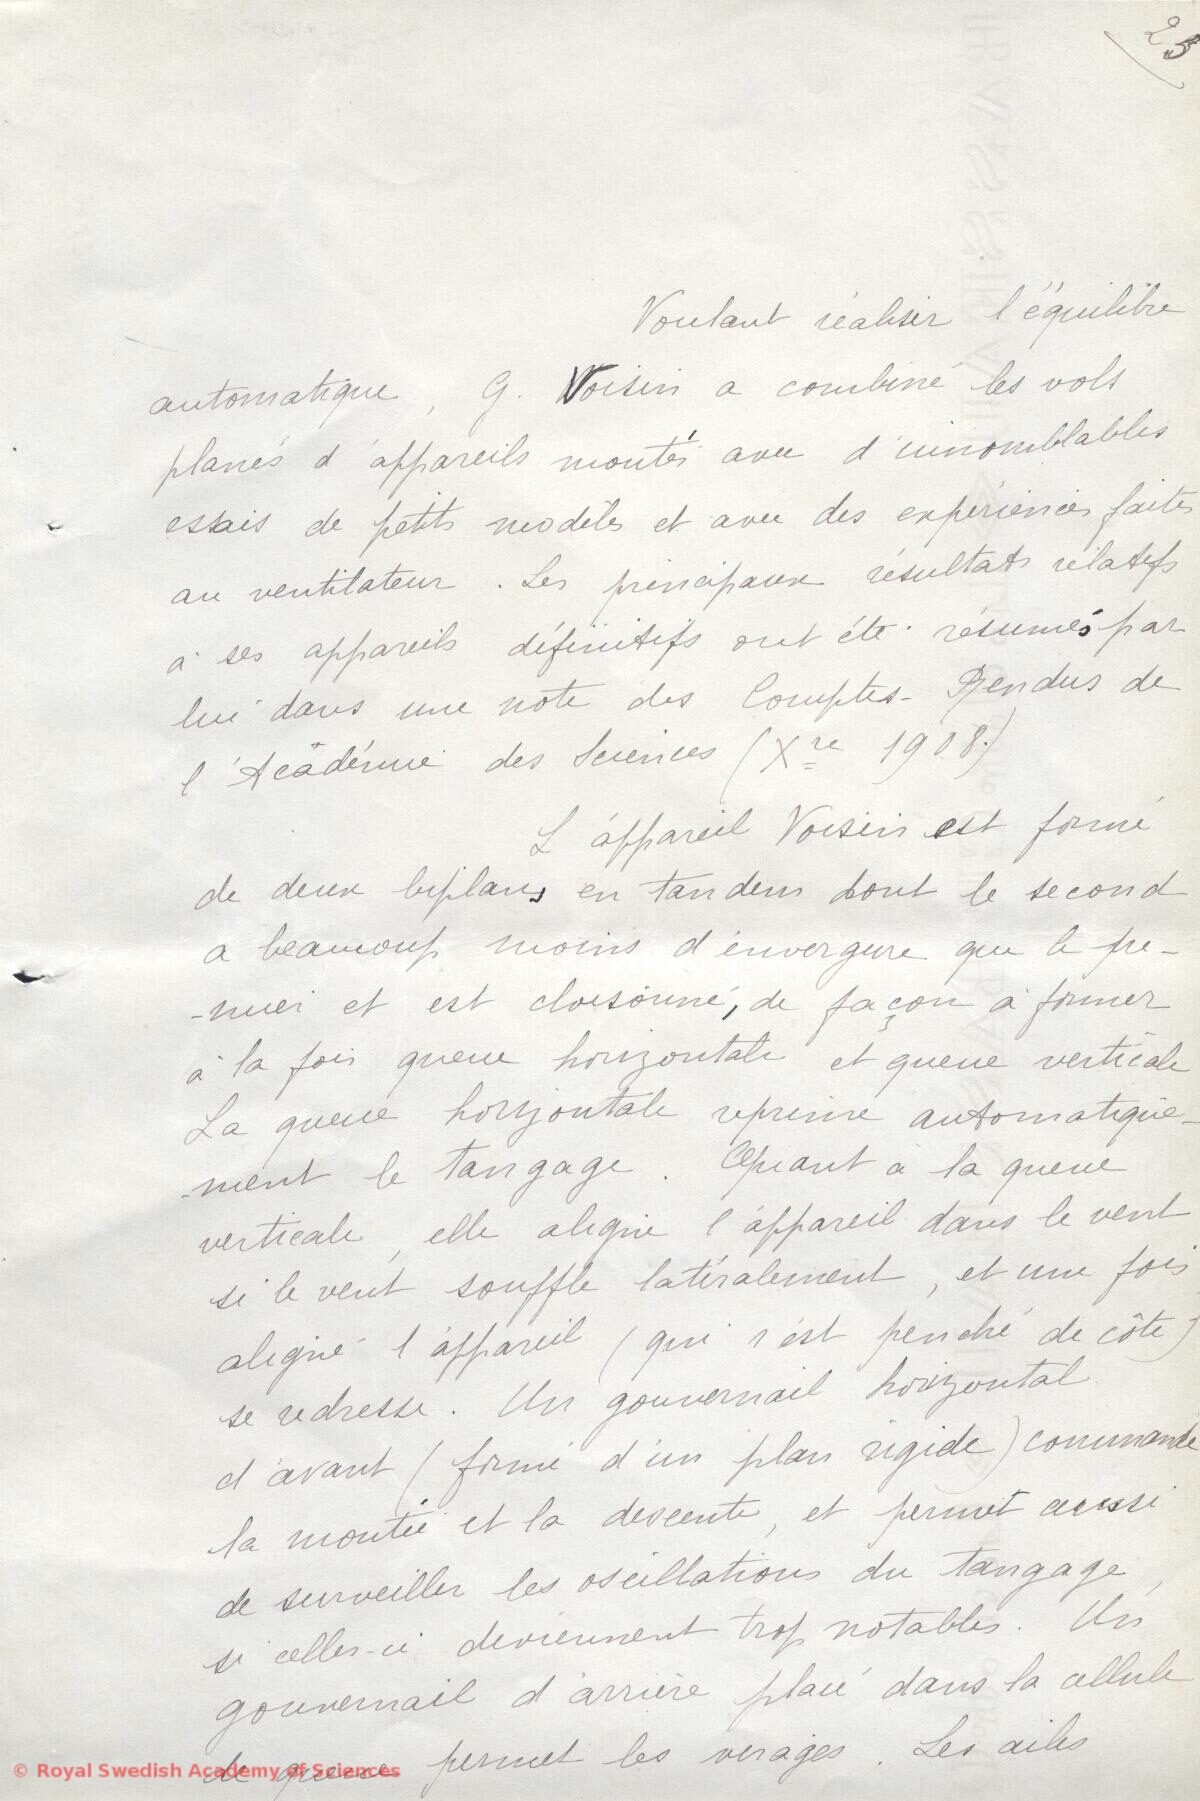 23
Voulant réaliser l'équilibre
automatique, G. Voisin a combiné les vols
planés d'appareils montés avec d'innomblables
essais de petits modèles et avec des expériences faites
au ventilateur. Les principaux résultats rélatifs
à ses appareils définitifs ont été résumés par
lui dans une note des Comptes-Rendus de
l'Académie des Sciences (Xre 1908.)
L'appareil Voisin est formé
de deux biplans en tandem dont le second
a beaucoup moins d'envergure que le pre-
-mier et est cloisonné, de façon à former
à la fois queue horizontale et queue verticale
La queue horizontale reprime automatique-
-ment le tangage. Quant à la queue
verticale, elle aligne l'appareil dans le vent
si le vent souffle latéralement, et une fois
aligné l'appareil (qui s'est penché de côté)
se redresse. Un gouvernail horizontal
d'avant (formé d'un plan rigide) commande
la montée et la descente, et permet aussi
de surveiller les oscillations du tangage,
si celles-ci deviennent trop notables. Un
gouvernail d'arrière placé dans la cellule
de queue permet les virages. Les ailes
© Royal Swedish Academy of Sciences